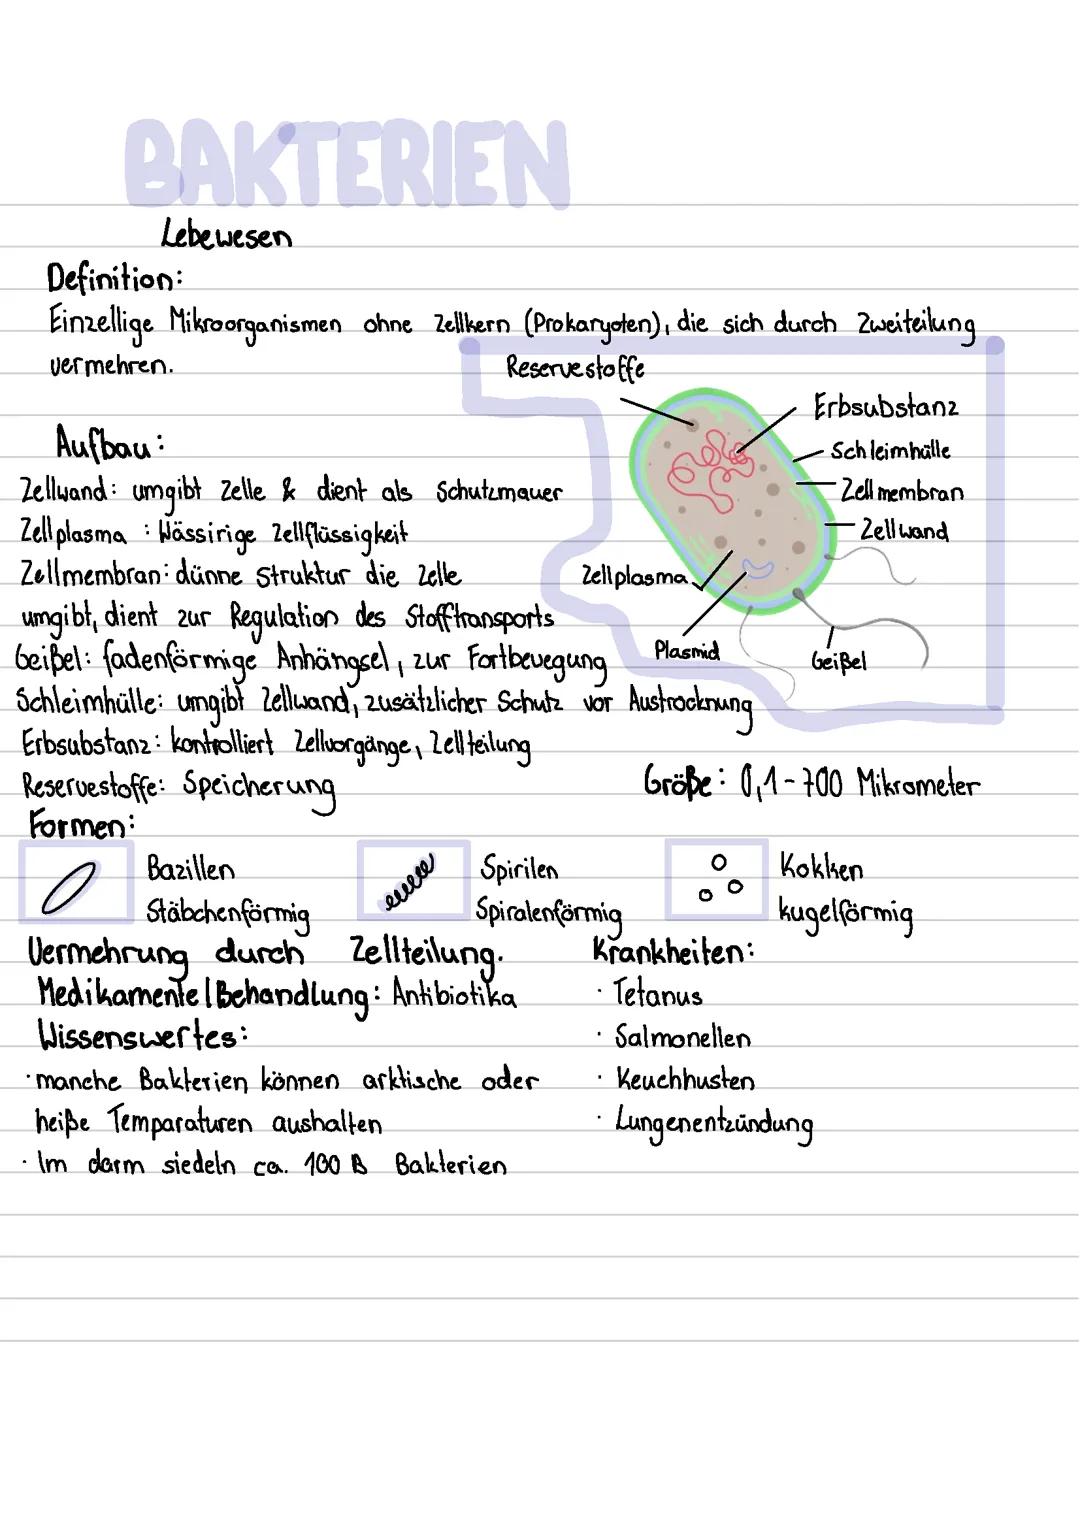 BAKTERIEN
Lebewesen
Definition:
Einzellige Mikroorganismen ohne Zellkern (Prokaryoten), die sich durch Zweiteilung
vermehren.
Reservestoffe
Erbsubstanz
Schleimhülle
Zellmembran
Zellwand
Zellplasma
Plasmid
Geißel
Aufbau:
Zellwand: umgibt Zelle & dient als Schutzmauer
Zellplasma : Wässirige Zellflüssigkeit
Zellmembran: dünne Struktur die Zelle
umgibt, dient zur Regulation des Stofftransports
Geißel: fadenförmige Anhängsel, zur Fortbewegung
Schleimhülle: umgibt Zellwand, zusätzlicher Schutz vor Austrocknung
Erbsubstanz: kontrolliert Zellvorgänge, Zellteilung
Reservestoffe: Speicherung
Größe: 0,1-700 Mikrometer
Formen:
Bazillen
Stäbchenförmig
Spirilen
Spiralenförmig
Kokken
kugelförmig
Vermehrung durch Zellteilung.
Medikamente|Behandlung: Antibiotika
Wissenswertes:
· manche Bakterien können arktische oder
heiße Temparaturen aushalten
· Im darm siedeln ca. 100 B Bakterien
Krankheiten:
· Tetanus
· Salmonellen
· Keuchhusten
· Lungenentzündung